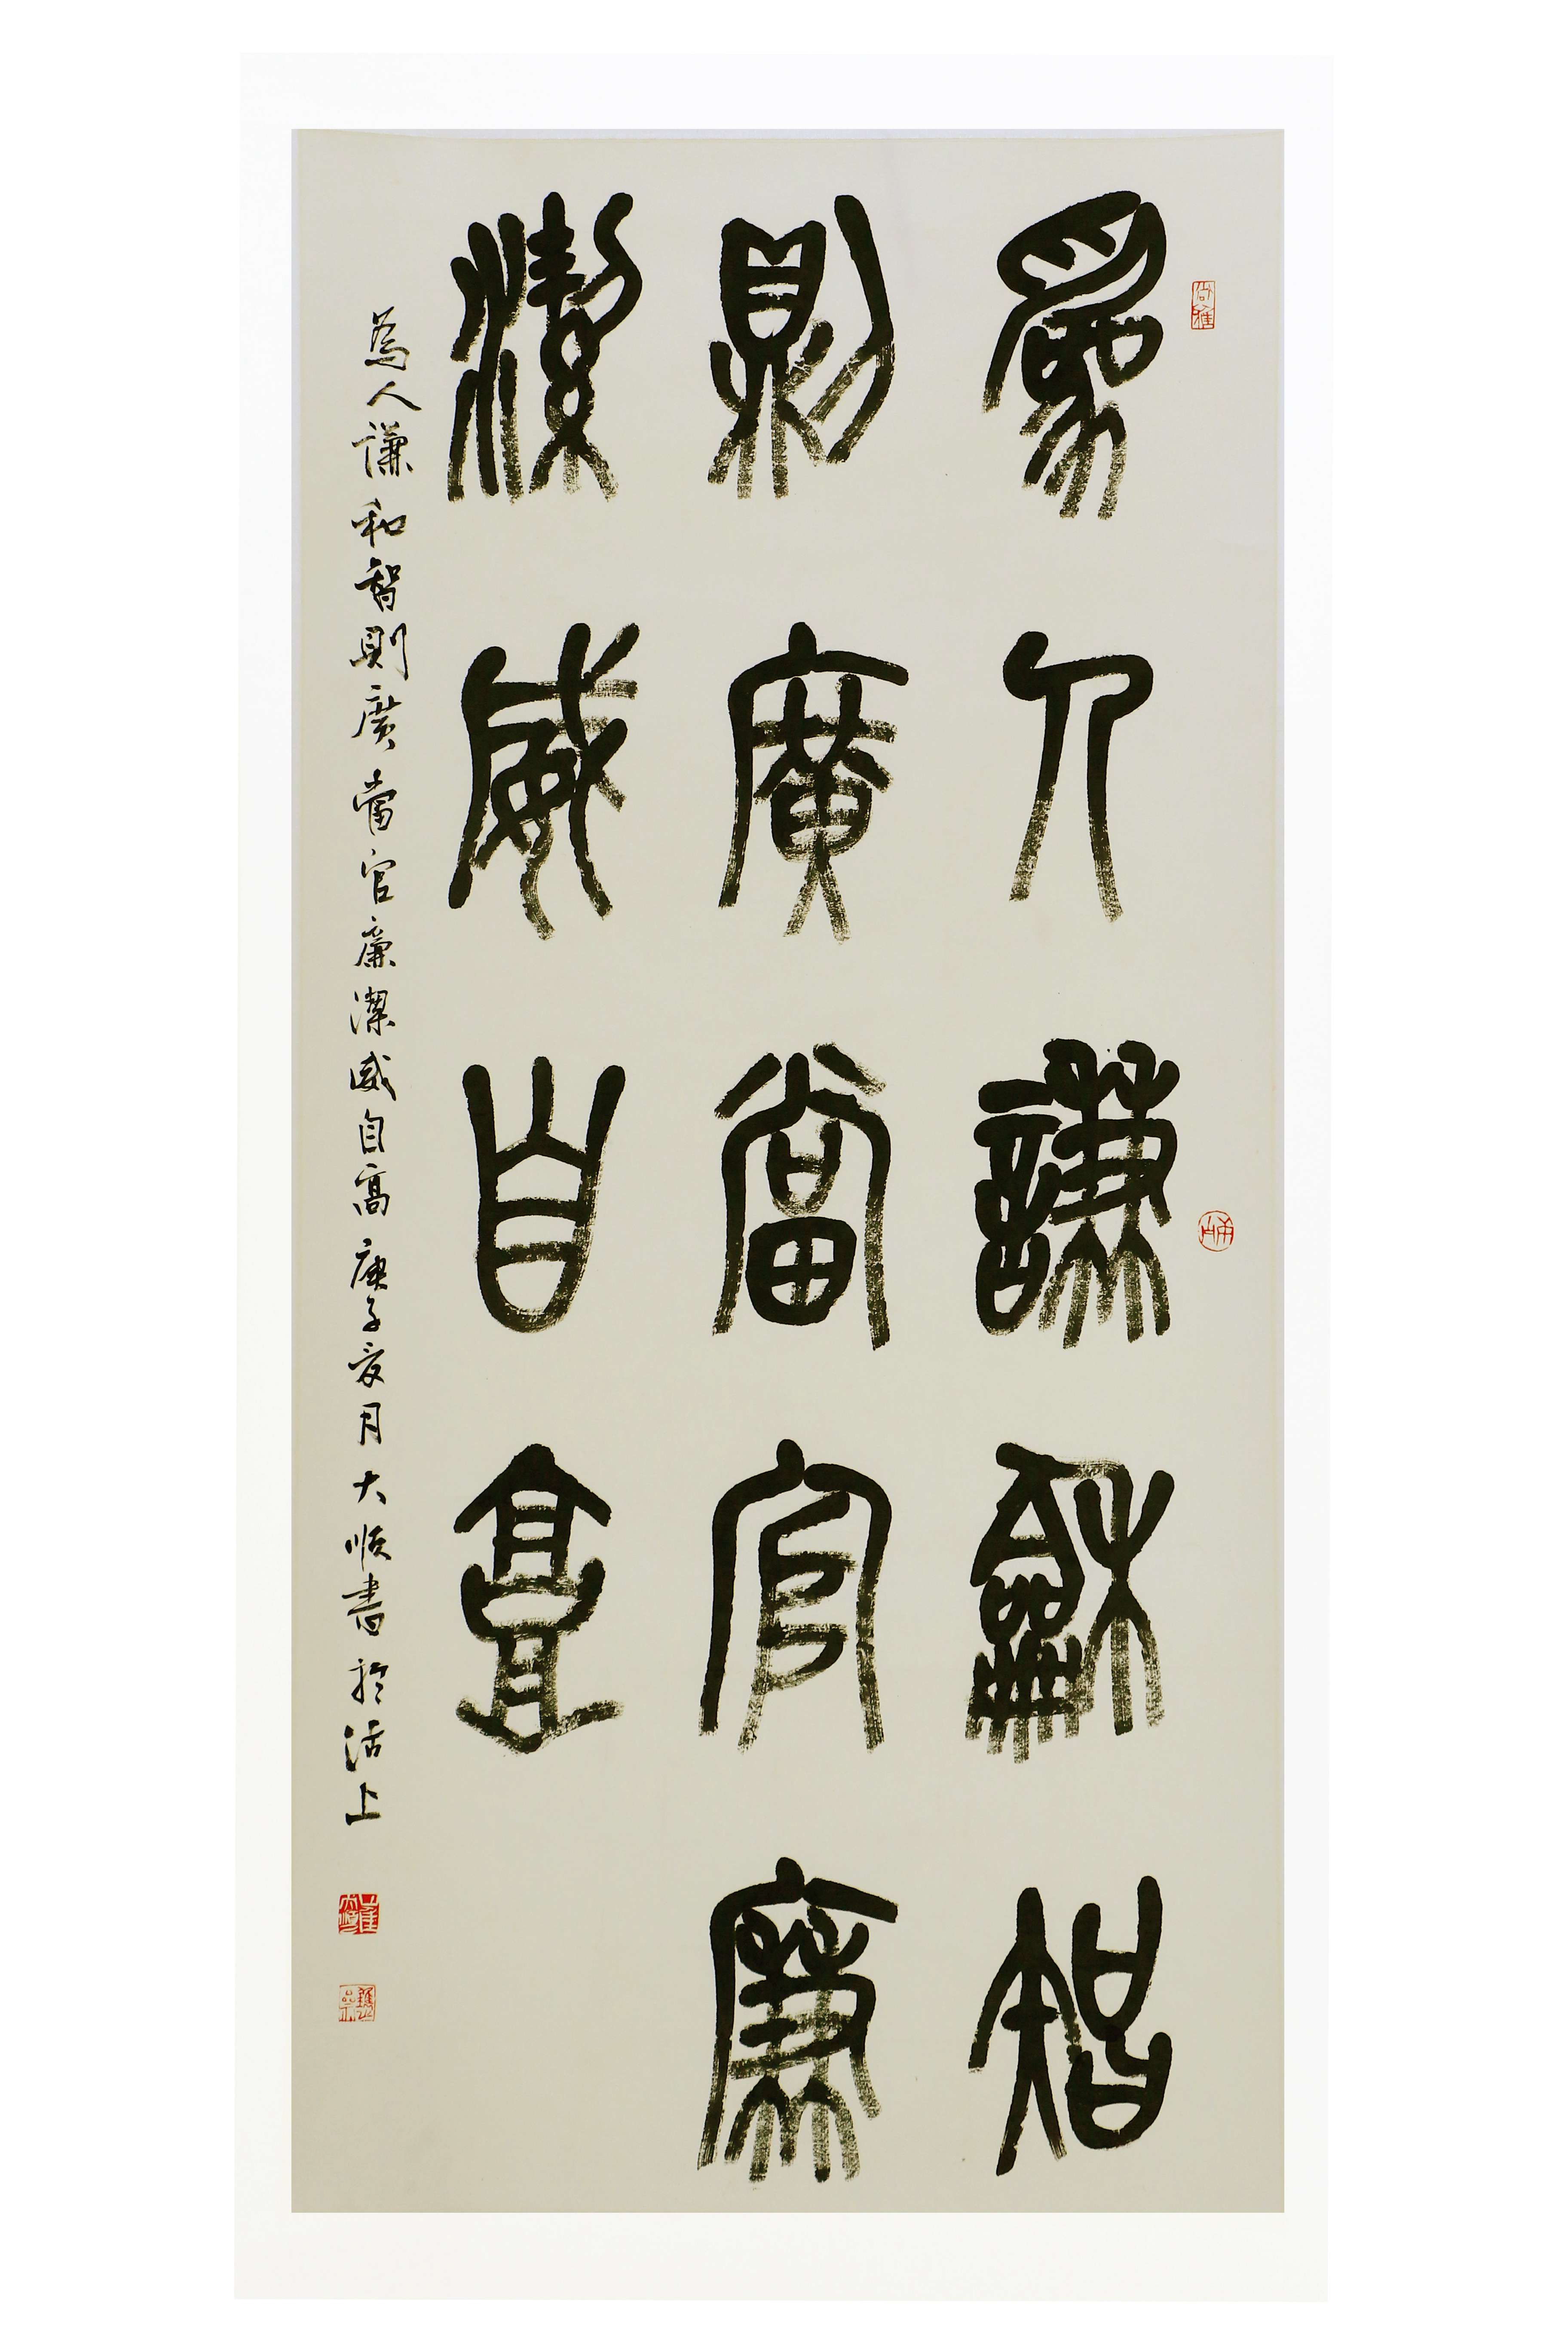 為人謙龢智
則廣當官廉
潔威自高
為人謙和智則廣當官廉潔威自高庚子夏月大順書於沽上
尚雅
崔大順